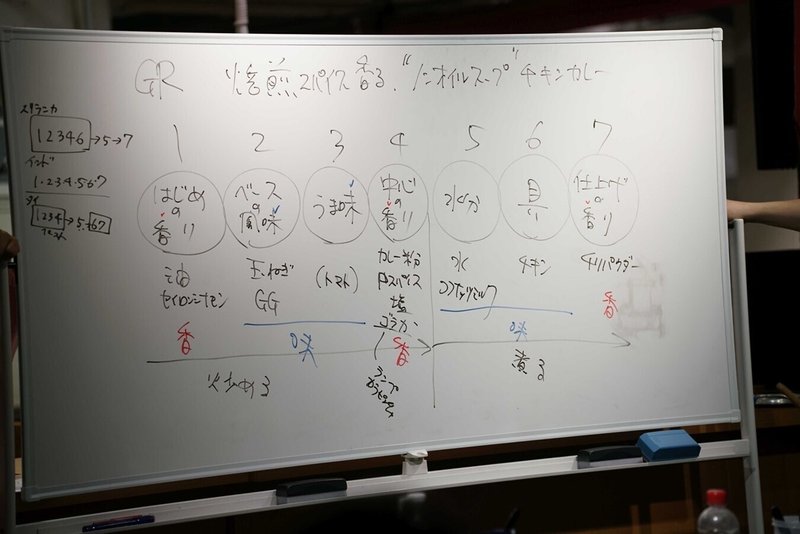 GR 焙煎スパイス香る、"ノンオイルスープ"チキンカレー
スリランカ
12346→5→7
インド
1・2・3・4・5・6・7
タイ
1234→5→67
ペースト
1 2 3 4 5 6 7
はじめの香り
ベースの風味
うま味
中心の香り
水分
具
仕上げの香り
油
セイロンシナモン
玉ねぎ
GG
(トマト)
カレー粉
Pスパイス
塩
水
ココナッツミルク
チキン
チリパウダー
香
味
香
味
香
炒める
煮る
ランペ